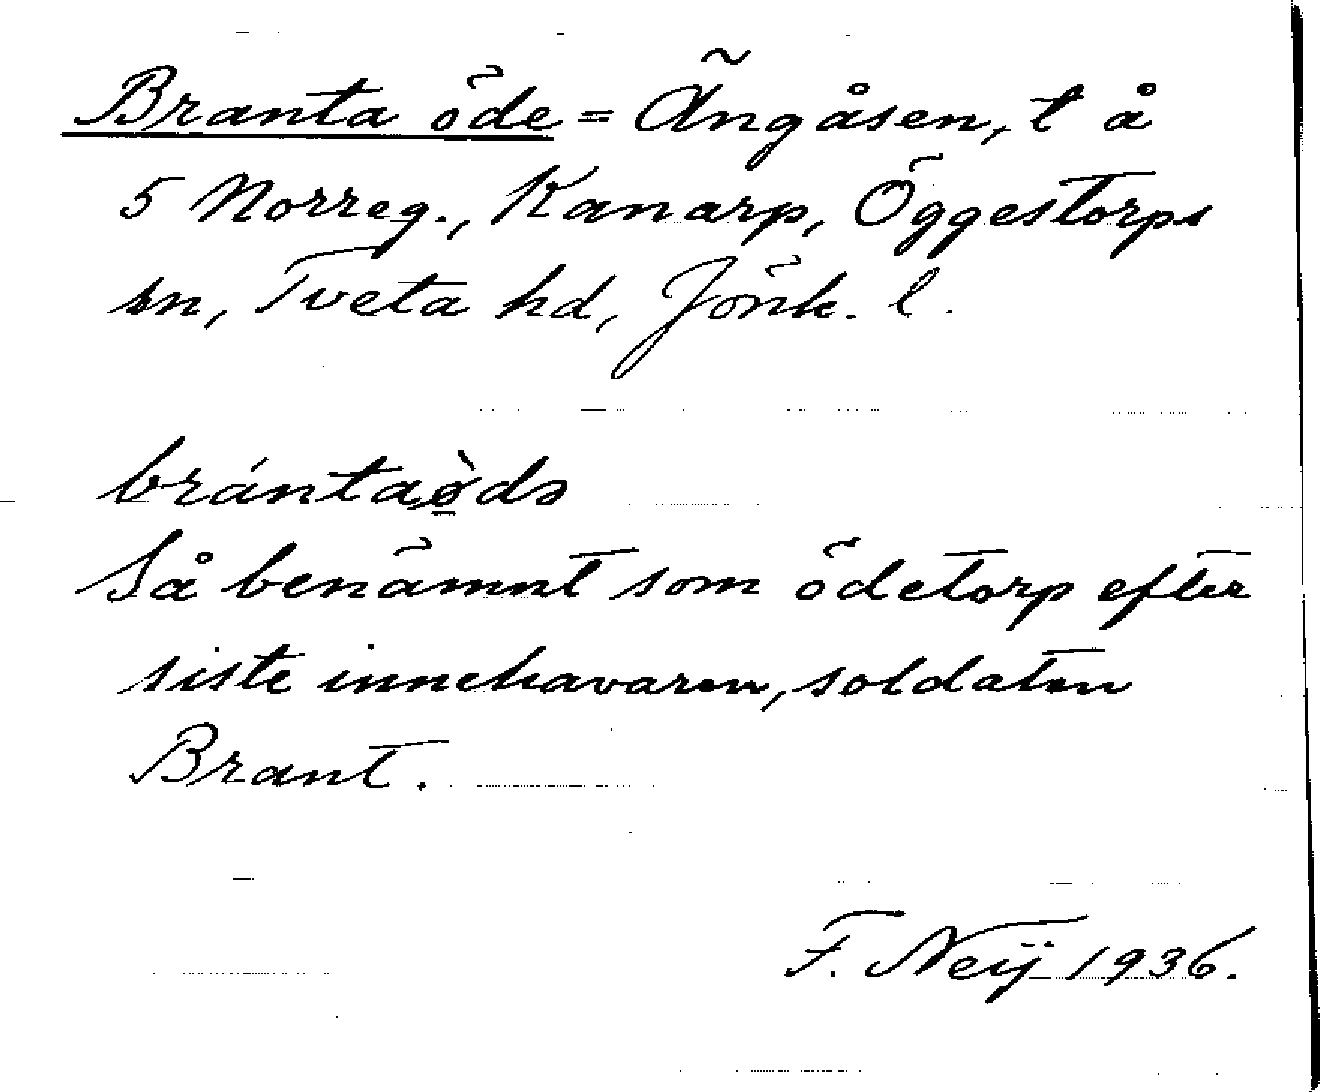 Branta öde = Ängåsen, t å
5 Norreg., Kanarp, Öggestorps
sn, Tveta hd, Jönk. l.
brántaø̀də
Så benämnt som ödetorp efter
siste innehavaren, soldaten
Brant.
F. Neij 1936.